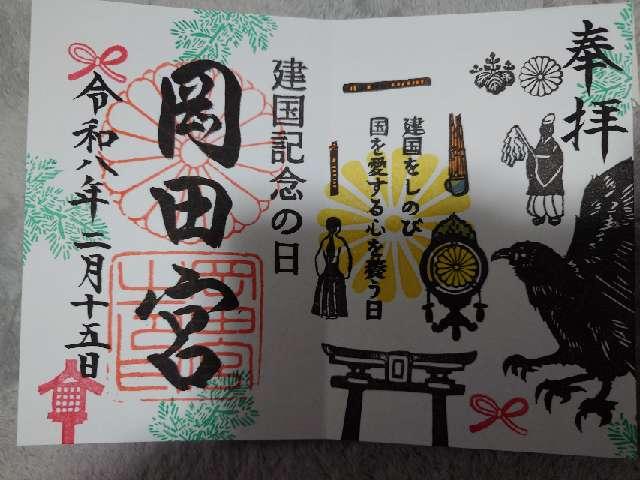 奉拝
建国をしのび
国を愛する心を養う日
建国記念の日
岡田宮
令和八年二月十五日